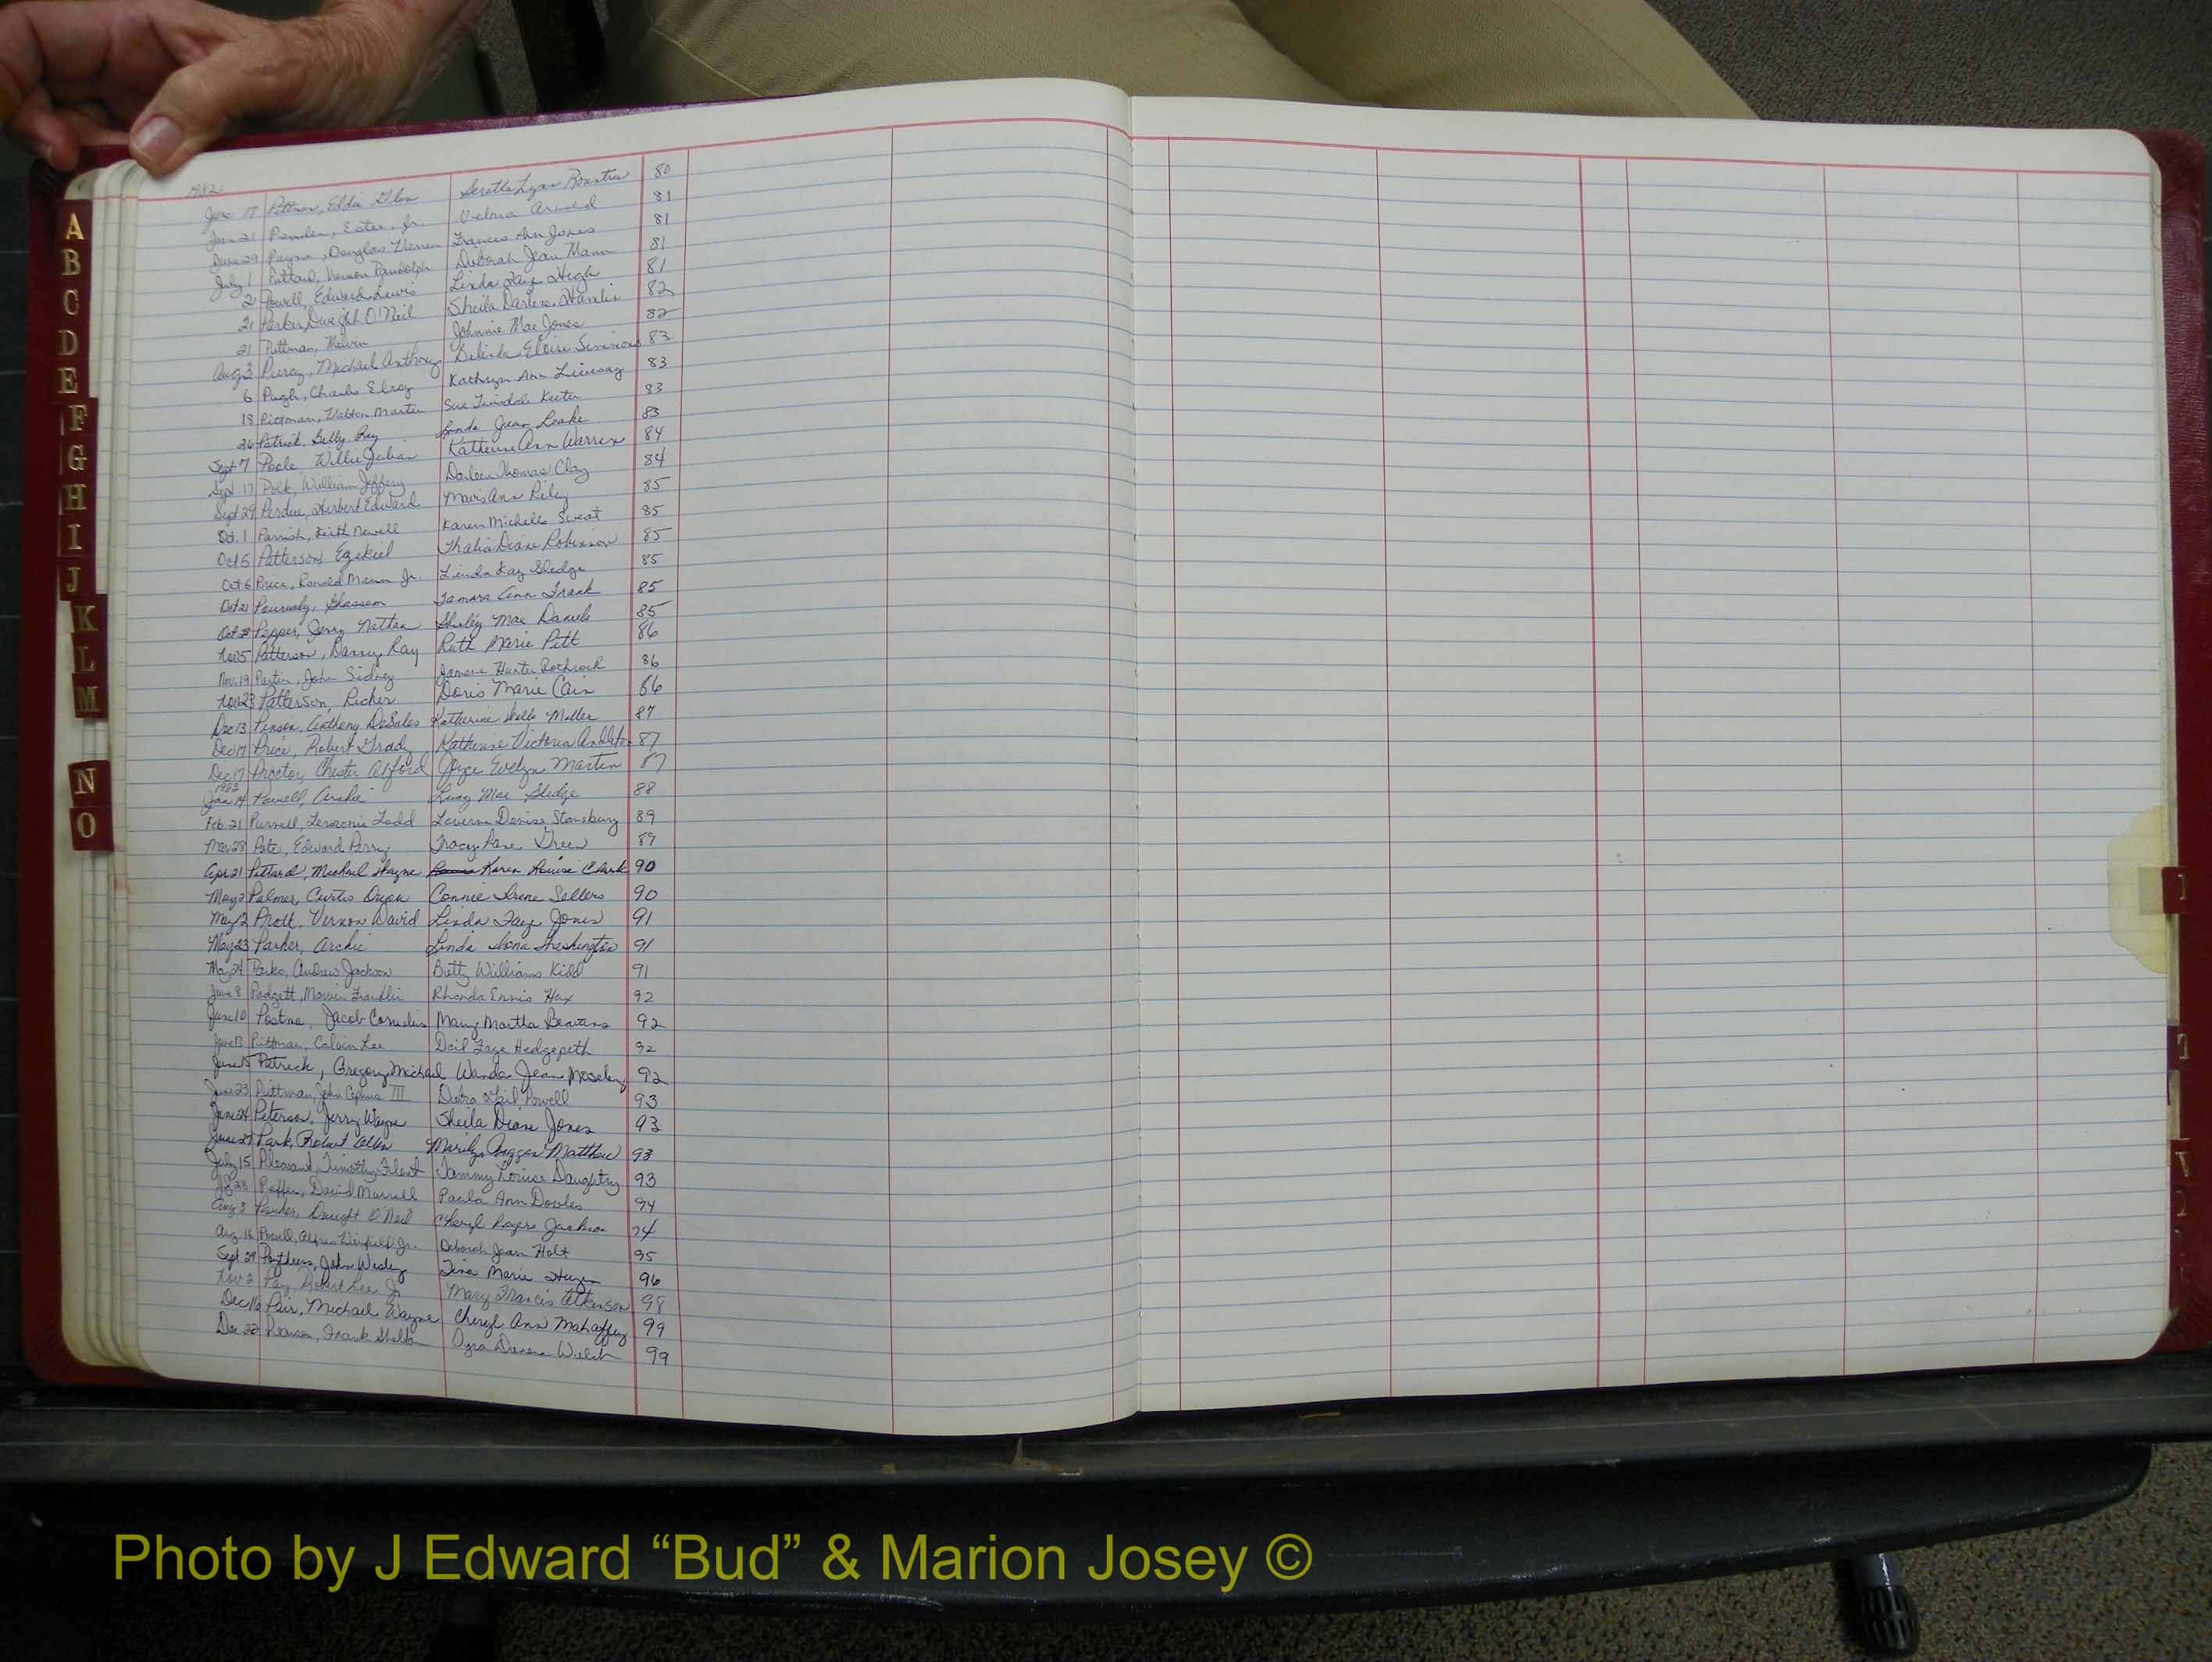 1982
June 17 Pittman, Eddie Glen Lynn Rountree 80
June 21 Pender, Ester, Jr. Velma Arnold 81
June 29 Payne, Douglas Warren Frances Ann Jones 81
July 1 Pittard, Vernon Randolph Deborah Jean Mann 81
2 Powell, Edward Lewis Linda Faye High 81
21 Parker, Dwight O'Neil Sheila Darlene Hamlin 82
21 Pittman, Melvin Johnnie Mae Jones 82
Aug 3 Piercy, Michael Anthony Belinda Eloise Simmons 83
6 Pugh, Charles Elroy Kathryn Ann 83
18 Pittman, Walton Martin Sue Keeter 83
26 Patrick, Billy Ray Linda Jean Leake 83
Sept 7 Poole, Willie Julian Katherine Ann Warren 84
Sept 17 Polk, William Jeffery Darleen Thomas Clay 84
Sept 29 Perdue, Herbert Edward Mavis Ann Riley 85
Oct. 1 Parrish, Keith Newell Karen Michelle Sweat 85
Oct 5 Patterson, Ezekiel Thalia Diane Robinson 85
Oct 6 Price, Ronald Mann Jr. Linda Kay Sledge 85
Oct 21 Ghassem Tamara Ann Frank 85
Oct 28 Pepper, Jerry Nathan Shirley Mae Daniels 85
Nov 5 Patterson, Danny Ray Ruth Marie Pitt 86
Nov. 19 Partin, John Sidney Hunter Rothrock 86
Nov 23 Patterson, Richer Doris Marie Cain 86
Dec 13 Penson, Anthony DeSales Katherine Miller 87
Dec 17 Price, Robert Grady Katherine Victoria 87
Dec 17 Proctor, Chester Alford Joyce Evelyn Martin 87
1983
Jan 14 Powell, Archie Lucy Mae Sledge 88
Feb. 21 Purnell, Ladd Laverne Denise Stansbury 89
Mar 28 Pate, Edward Perry Tracy Green 89
Apr 21 Pittard, Michael Wayne Karen Louise Clark 90
May 2 Palmer, Curtis Owen Connie Irene Sellers 90
May 12 Prott, Vernon David Linda Faye Jones 91
May 23 Parker, Archie Linda Iona 91
May 24 Parks, Andrew Jackson Betty Williams Kidd 91
June 8 Padgett, Marvin Franklin Rhonda Ennis Hux 92
June 10 Postma, Jacob Cornelius Mary Martha Beavers 92
June 13 Pittman, Calvin Lee Dail Faye Hedgepeth 92
June 15 Patrick, Gregory Michael Wanda Jean Moseley 92
June 23 Pittman, John Cephus III Debra Gail Powell 93
June 24 Peterson, Jerry Wayne Sheila Diane Jones 93
June 27 Park, Robert Allen Marilyn Matthew 93
July 15 Pleasant, Timothy Tammy Louise Daughtry 93
28 David Paula Ann Dowles 94
Aug 3 Parker, Dwight O'Neil Cheryl Rogers Jackson 94
Aug 16 Powell, Alfred Winfield Jr. Deborah Jean Holt 95
Sept 29 John Wesley Tina Marie 96
Nov 2 Robert Lee Jr Mary Francis Atkinson 98
Dec 16 Pair, Michael Wayne Cheryl Ann Mahaffey 99
Dec 22 Pearson, Frank Shelton Welch 99
A
B
C
D
E
F
G
H
I
J
K
L
M
N
O
Photo by J Edward “Bud” & Marion Josey ©